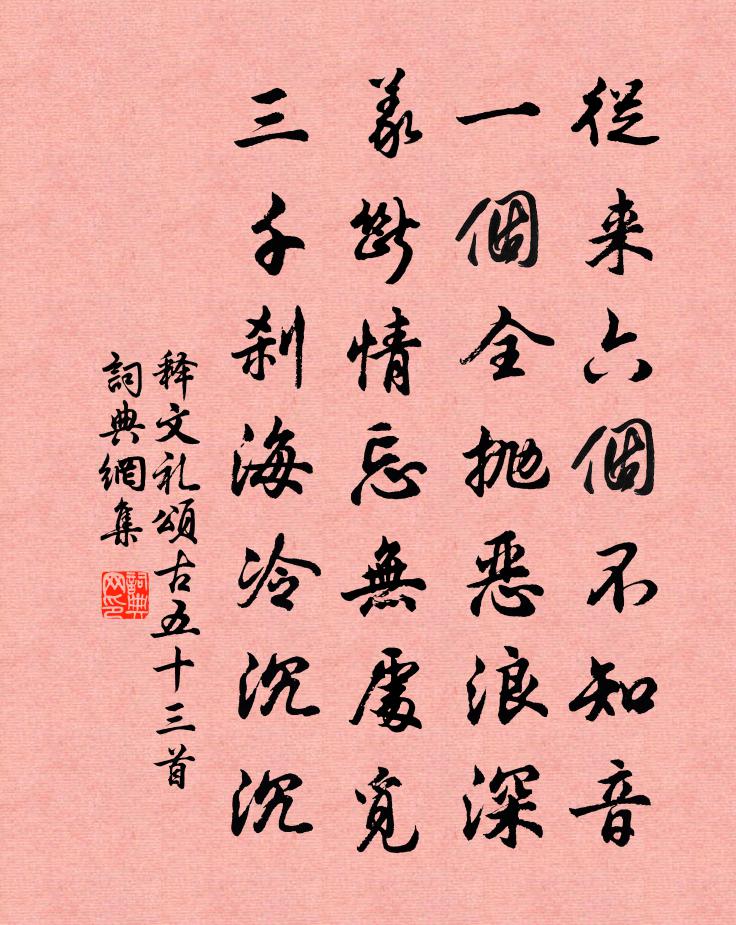 從来六個不知音
一個全抛恶浪深
義断情忘無處覓
三千刹海冷沉沉
释文礼頌古五十三首
詞典網集
詞典网印